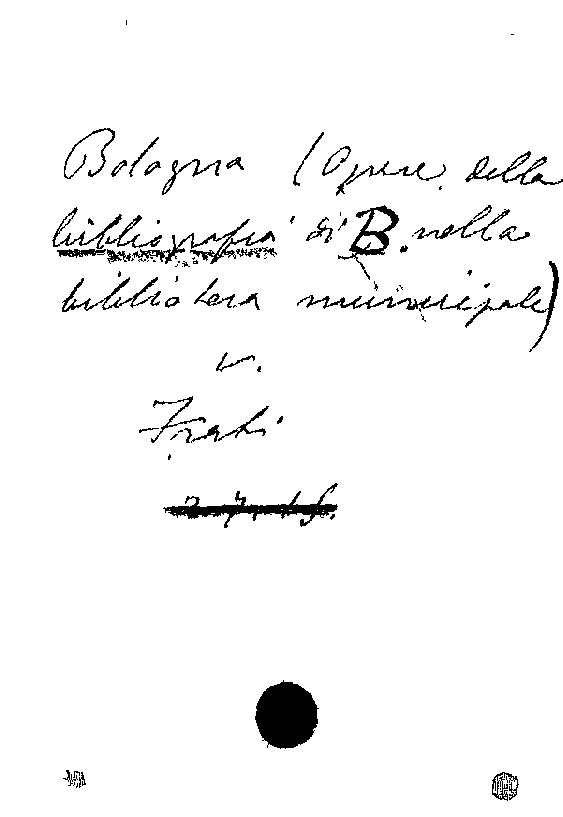 Bologna (Opere della
bibliografia di B. nella
biblioteca municipale)
v.
Frati